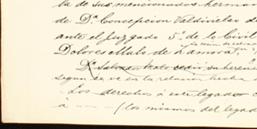 la de sus mencionados herman
de D.ª Concepcion Valdivieso de
ante el Juzgado 5º de lo Civil
Dolores Malo de Zamora
D. Salvador Malo
segun se ve en la relacion hecha
Los derechos á este legador
á (los mismos del legad